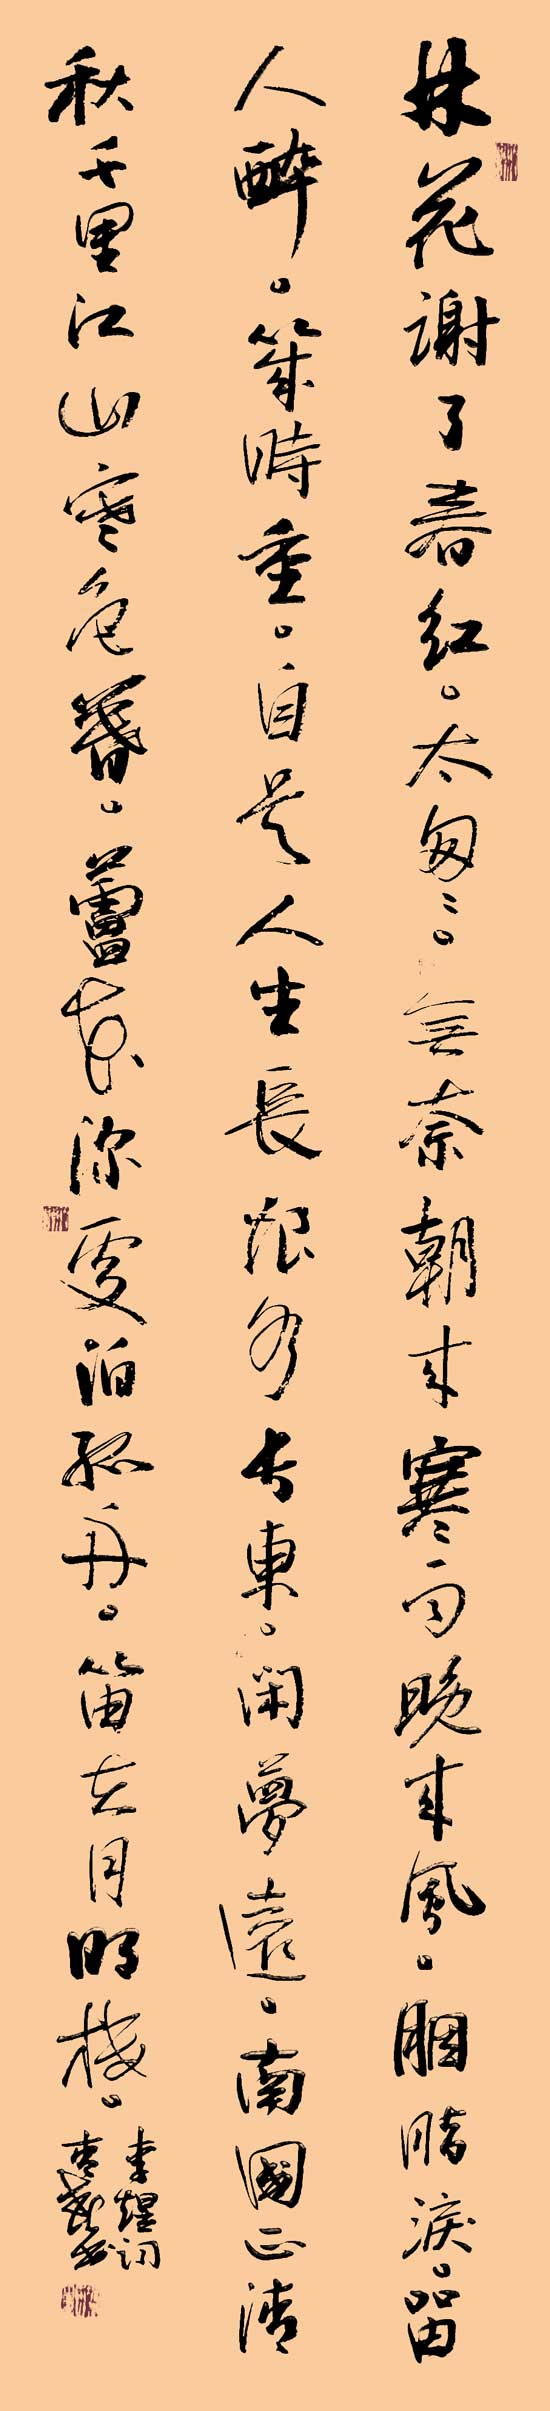 林花謝了春紅。太匆〻。無奈朝來寒雨晚來風。胭脂淚。留
人醉。幾時重。自是人生長恨水長東。閑夢遠。南國正清
秋千里江山寒色暮。蘆花深處泊孤舟。笛在月明樓。
李煜詞